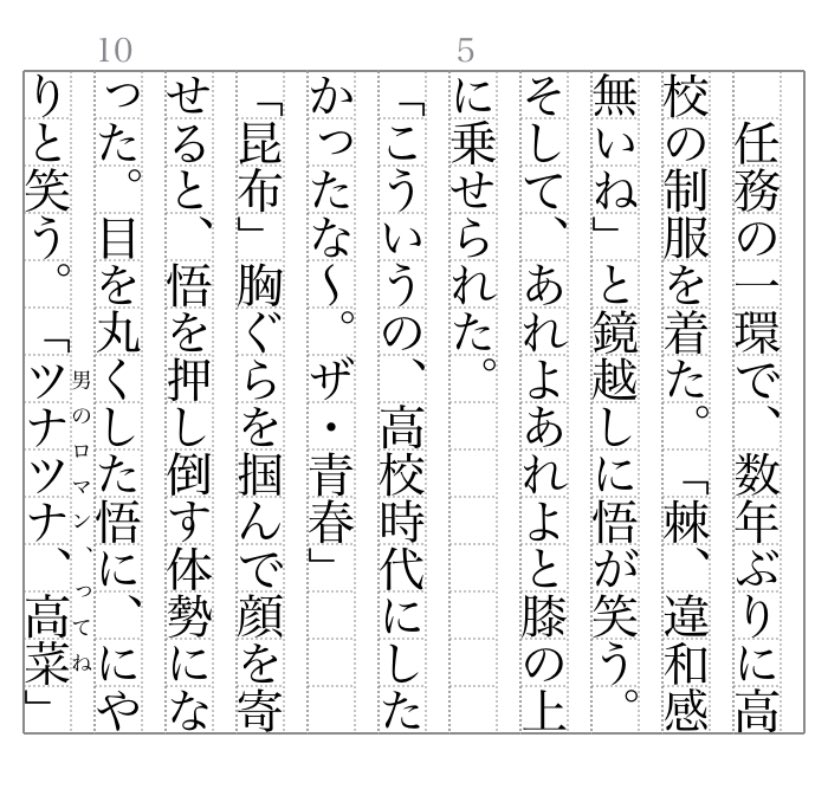 任務の一環で、数年ぶりに高
校の制服を着た。「棘、違和感
無いね」と鏡越しに悟が笑う。
そして、あれよあれよと膝の上
に乗せられた。
「こういうの、高校時代にした
かったな〜。ザ・青春」
「昆布」胸ぐらを掴んで顔を寄
せると、悟を押し倒す体勢にな
った。目を丸くした悟に、にや
男のロマン、ってね
りと笑う。「ツナツナ、高菜」
5
10